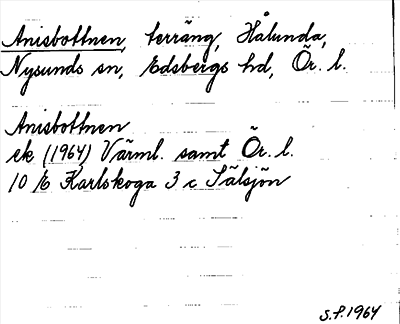 Anisbottnen, terräng, Hålunda,
Nysunds sn, Edsbergs hd, Ör. l.
Anisbottnen
ek (1964) Värml. samt Ör. l.
10 E Karlskoga 3 c Sälsjön
S.P. 1964